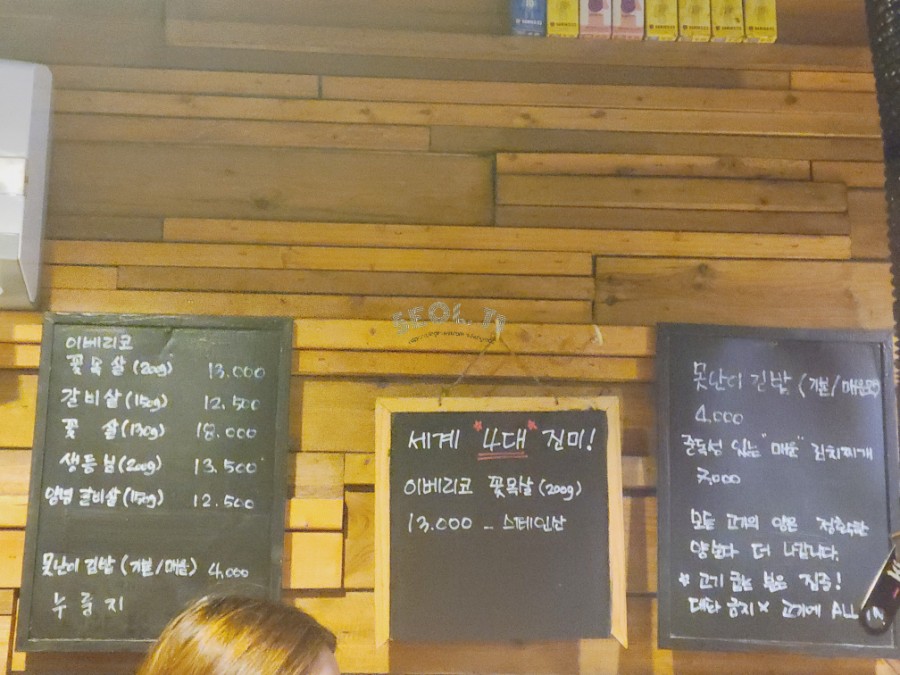 SEOL.II
이베리코
꽃목살(200g) 13.000
갈비살(150g) 12.500
꽃 살(130g)
생등심(200g) 13.500
양념 갈비살(150g) 12.500
못난이 김밥 (기본/매운) 4,000
누룽지
세계 "4대" 진미!
이베리코 꽃목살(200g)
13.000 - 스페인산
못난이 김밥 (기본/매운맛)
4.000
중독성 있는 "매운" 김치찌개
7.000
모든 고기의 양은 정확한
양보다 더 나갑니다.
* 고기 굽는 분은 집중!
대화 금지 × 고기에 ALL IN